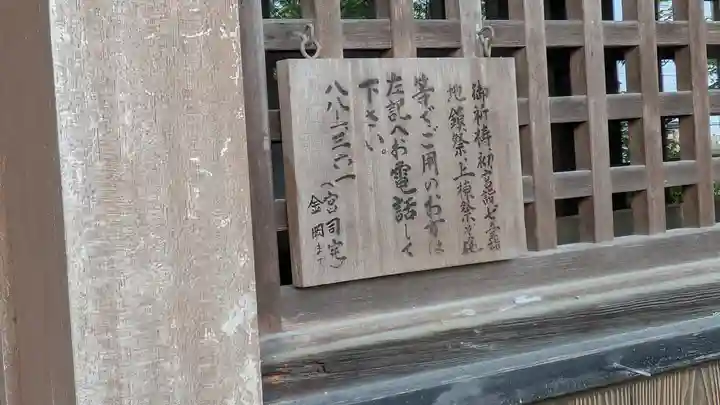 御祈祷・初宮詣・七五三詣
地鎮祭・上棟祭・
等でご用のお方は
左記へお電話して
下さい。
八八二三六一
（宮司宅）
金岡まで